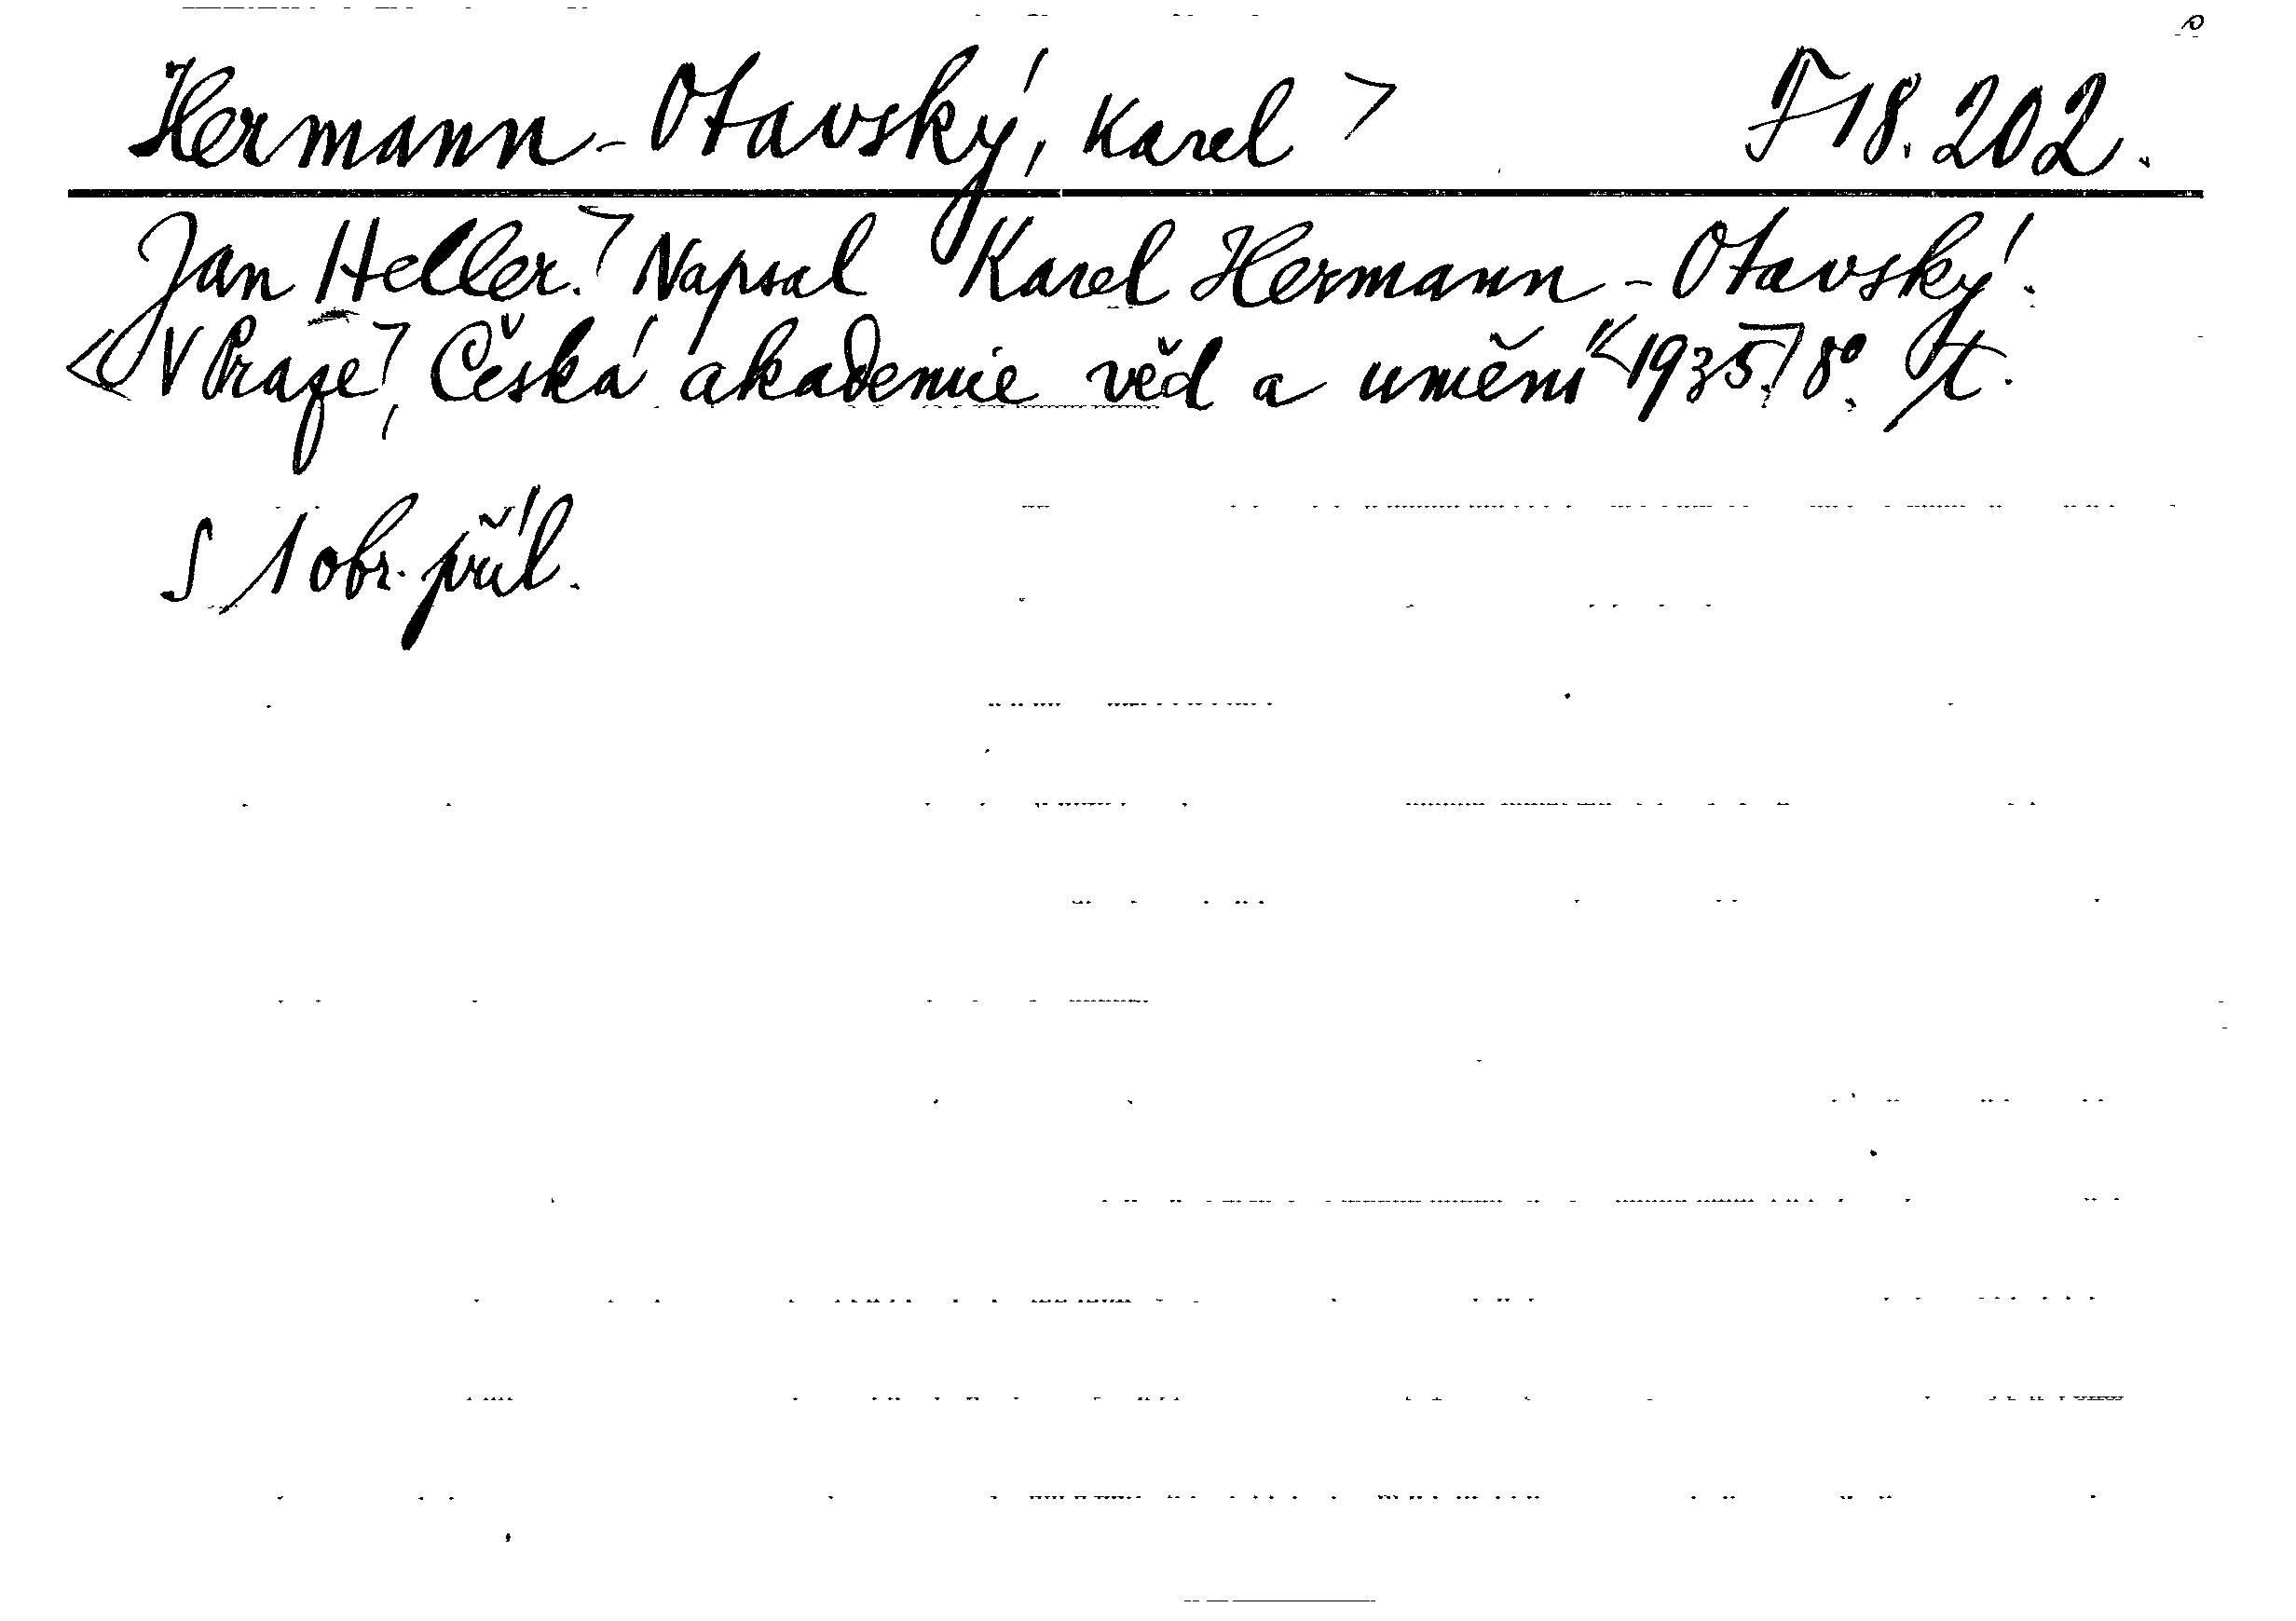 Hermann-Otavský, Karel F 18.202.
Jan Heller. Napsal Karel Hermann-Otavský.
V Praze, Česká akademie věd a umění 1935. 8°. t.
S 1 obr. příl.